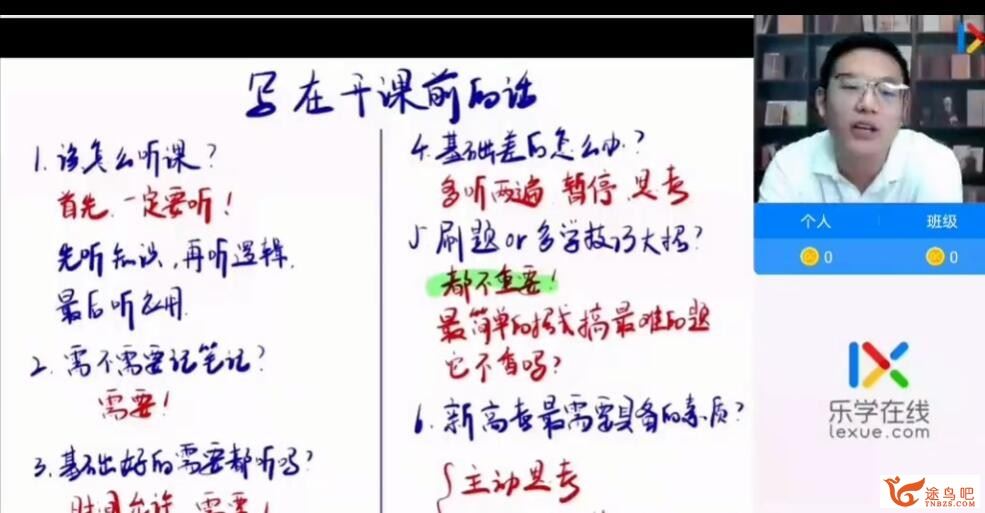 写在开课前的话
1. 该怎么听课？
首先，一定要听！
先听知识，再听逻辑，
最后听应用
2. 需不需要记笔记？
需要！
3. 基础好的需要都听吗？
时间允许，需要！
4. 基础差的怎么办？
多听两遍 暂停 思考
5 刷题 or 多学技巧大招？
都不重要！
最简单的招式搞最难的题
它不香吗？
6. 新高考最需要具备的素质？
主动思考
个人
班级
0
0
乐学在线
lexue.com
途鸟吧
TNBZS.COM